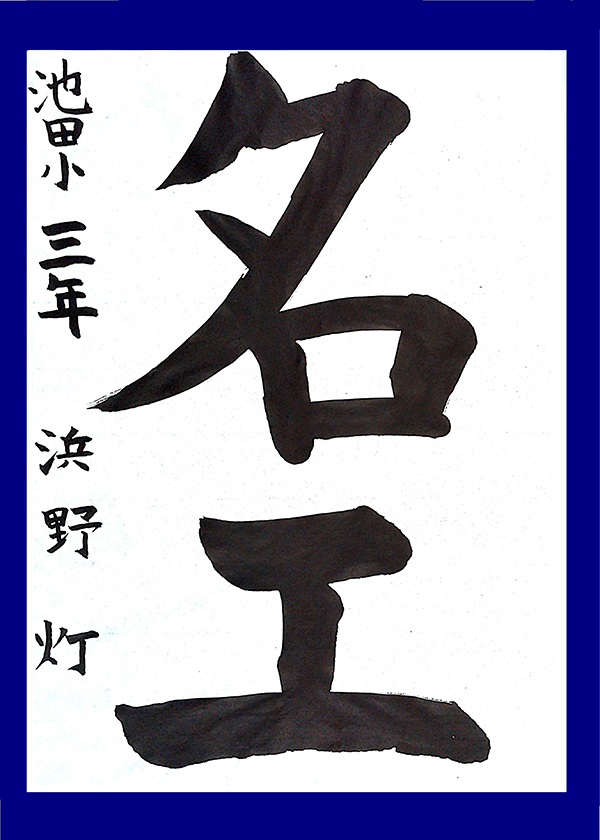 名工
池田小 三年 浜野 灯